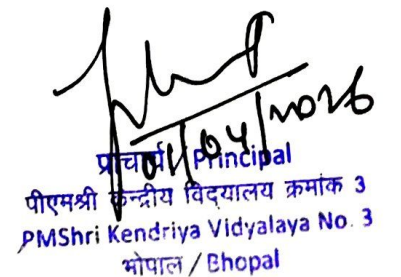 01/04/2026
प्राचार्य / Principal
पीएमश्री केन्द्रीय विद्यालय क्रमांक 3
PMShri Kendriya Vidyalaya No. 3
भोपाल / Bhopal